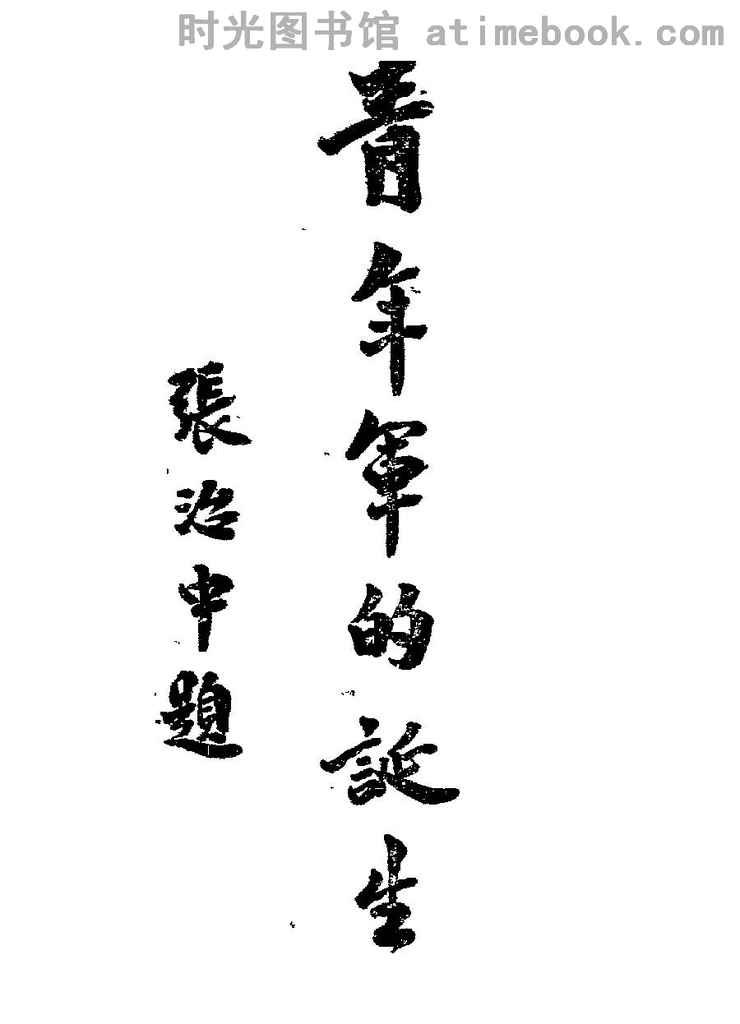 时光图书馆 atimebook.com
青年軍的誕生
張治中題